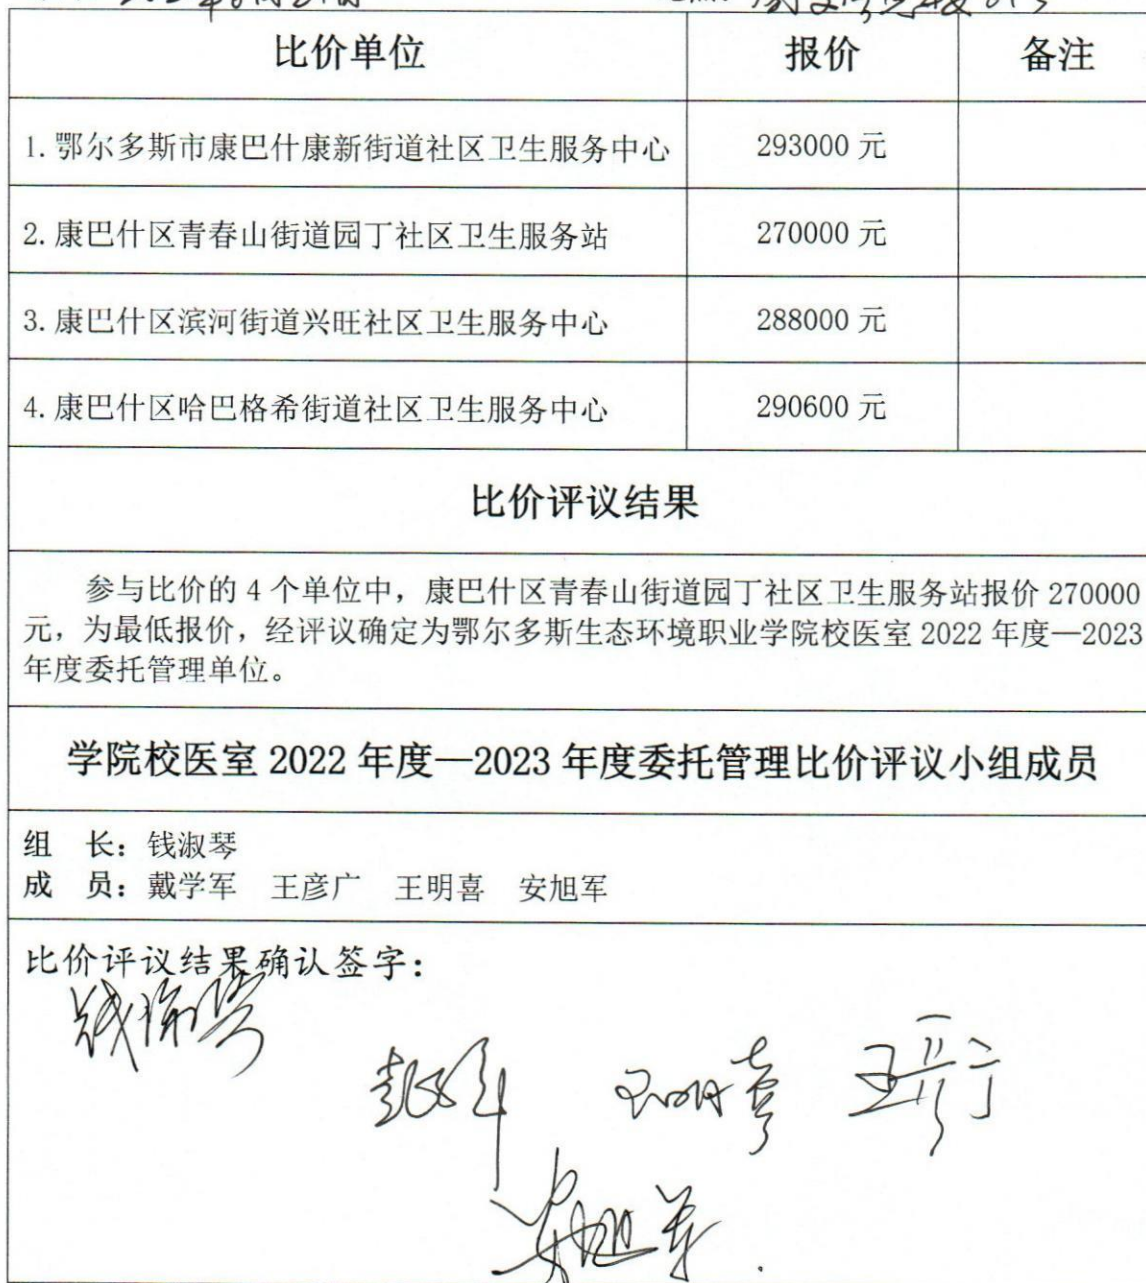 比价单位 报价 备注
1. 鄂尔多斯市康巴什康新街道社区卫生服务中心 293000 元
2. 康巴什区青春山街道园丁社区卫生服务站 270000 元
3. 康巴什区滨河街道兴旺社区卫生服务中心 288000 元
4. 康巴什区哈巴格希街道社区卫生服务中心 290600 元
比价评议结果
参与比价的 4 个单位中，康巴什区青春山街道园丁社区卫生服务站报价 270000
元，为最低报价，经评议确定为鄂尔多斯生态环境职业学院校医室 2022 年度—2023
年度委托管理单位。
学院校医室 2022 年度—2023 年度委托管理比价评议小组成员
组 长：钱淑琴
成 员：戴学军 王彦广 王明喜 安旭军
比价评议结果确认签字：
钱淑琴
戴学军 王明喜 王彦广
安旭军